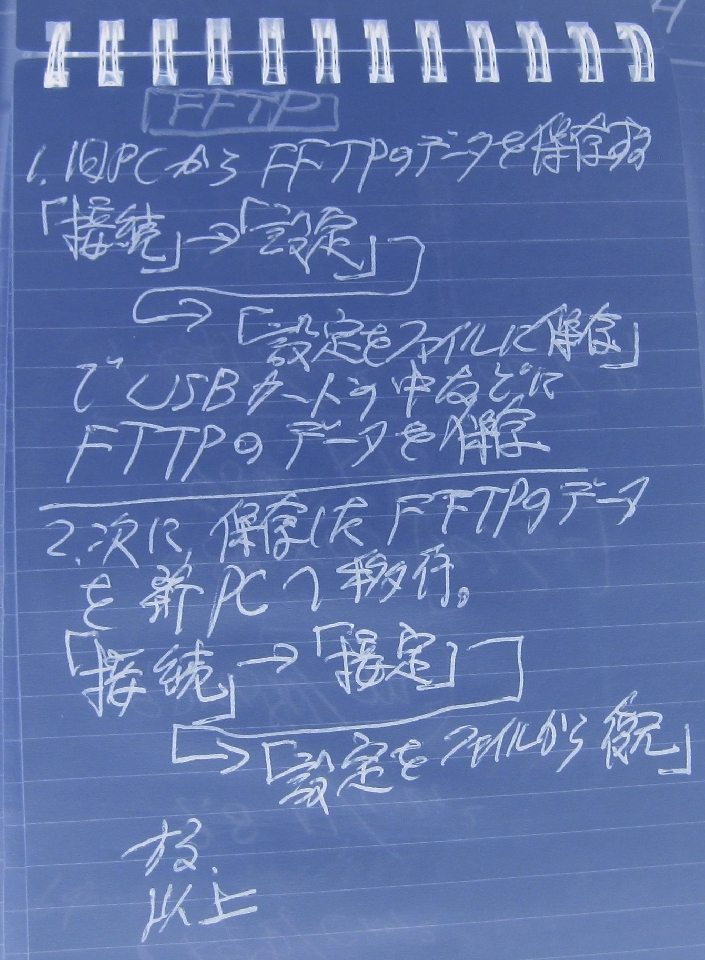 FFTP
1. 旧PCからFFTPのデータを保存する
「接続」→「設定」
→「設定をファイルに保存」
でUSBカードの中などに
FTTPのデータを保存
2. 次に、保存したFFTPのデータ
を新PCへ移行。
「接続」→「接定」
→「設定をファイルから復元」
する.
以上